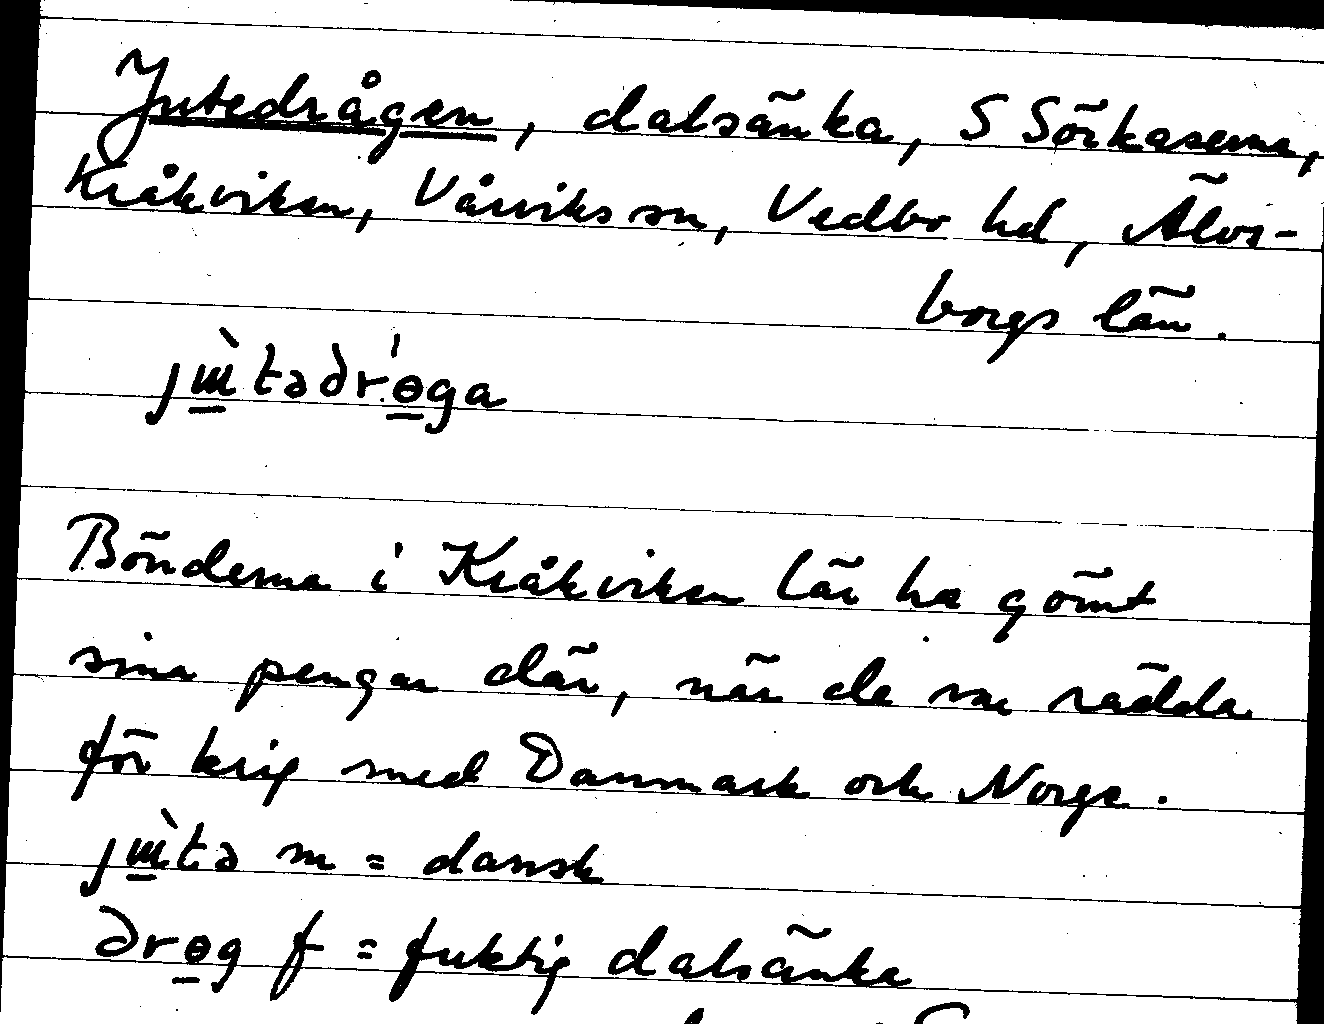 Jutedrågen, dalsänka, S Sörkaserna,
Kråkviken, Vårviks sn, Vedbo hd, Älvs-
borgs län.
jɯ̀tədrɵga
Bönderna i Kråkviken lär ha gömt
sina pengar där, när de var rädda
för krig med Danmark och Norge.
jɯ̀tə m = dansk
drɵg f = fuktig dalsänka